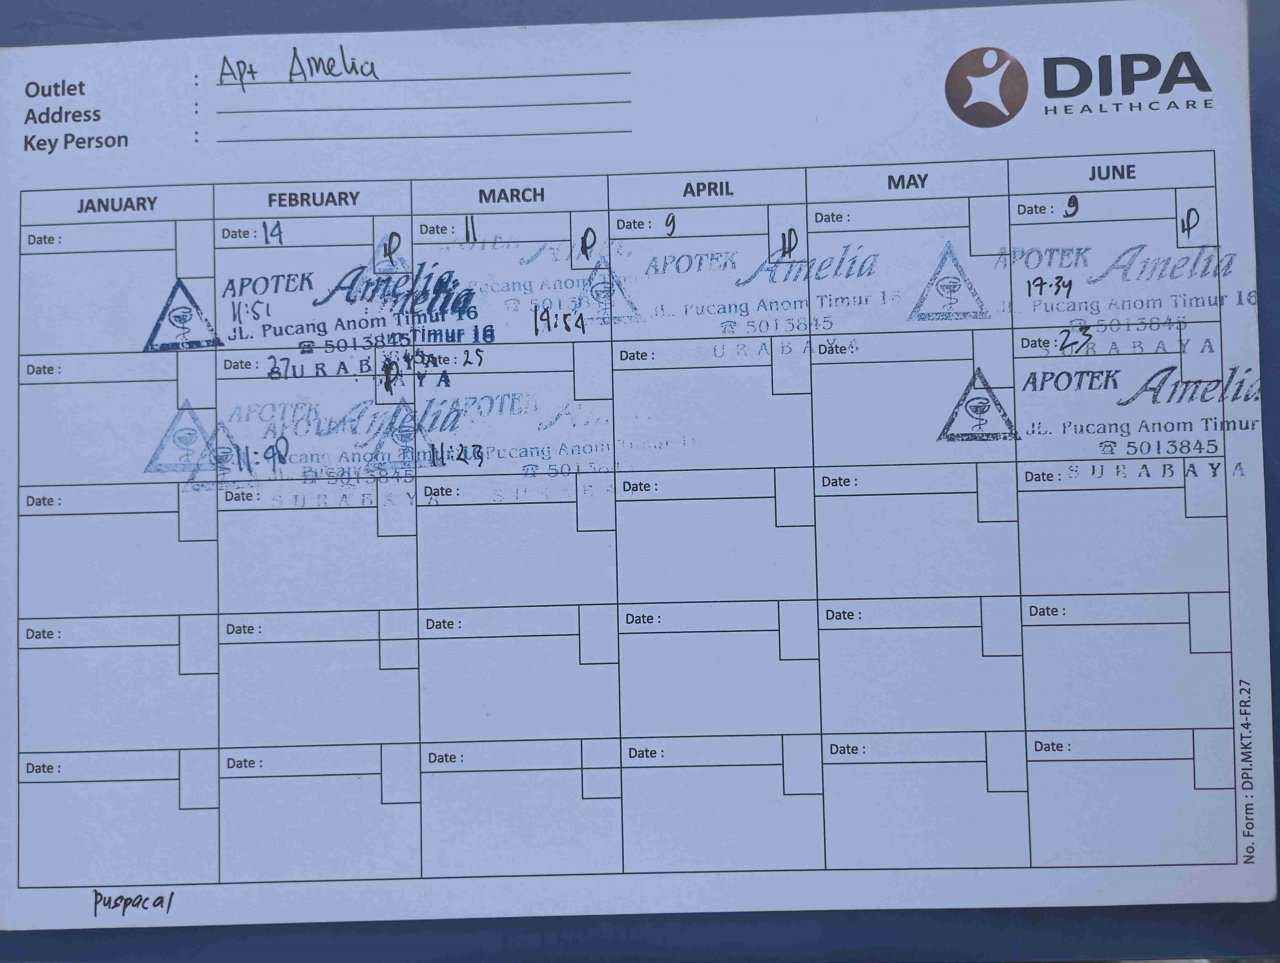 Outlet : Apt Amelia
Address :
Key Person :
DIPA
HEALTHCARE
JANUARY FEBRUARY MARCH APRIL MAY JUNE
Date : Date : 14 Date : 11 Date : 9 Date : Date : 9
APOTEK Amelia APOTEK APOTEK Amelia APOTEK Amelia
11:51 19:54 17:34
JL. Pucang Anom Timur 16 Pucang Anom JL. Pucang Anom Timur 16 JL. Pucang Anom Timur 16
☎ 5013845 ☎ 5013845 ☎ 5013845
SURABAYA SURABAYA SURABAYA
Date : Date : 27 Date : 25 Date : Date : Date : 23
APOTEK Amelia APOTEK APOTEK Amelia
11:23
Pucang Anom JL. Pucang Anom Timur
5013845 ☎ 5013845
SURABAYA SURABAYA
Date : Date : Date : Date : Date : Date :
Date : Date : Date : Date : Date : Date :
Date : Date : Date : Date : Date : Date :
No. Form : DPI.MKT.4-FR.27